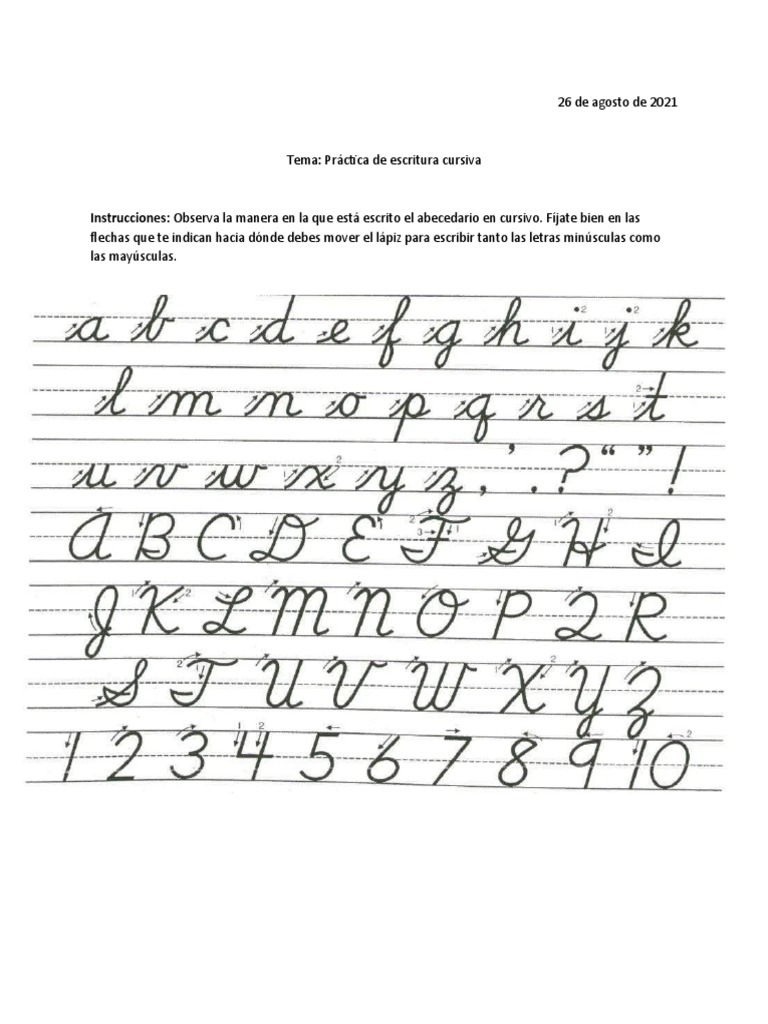 26 de agosto de 2021
Tema: Práctica de escritura cursiva
Instrucciones: Observa la manera en la que está escrito el abecedario en cursivo. Fíjate bien en las
flechas que te indican hacia dónde debes mover el lápiz para escribir tanto las letras minúsculas como
las mayúsculas.
a b c d e f g h i j k
l m n o p q r s t
u v w x y z , ’ . ? “ ” !
A B C D E F G H I
J K L M N O P Q R
S T U V W X Y Z
1 2 3 4 5 6 7 8 9 10